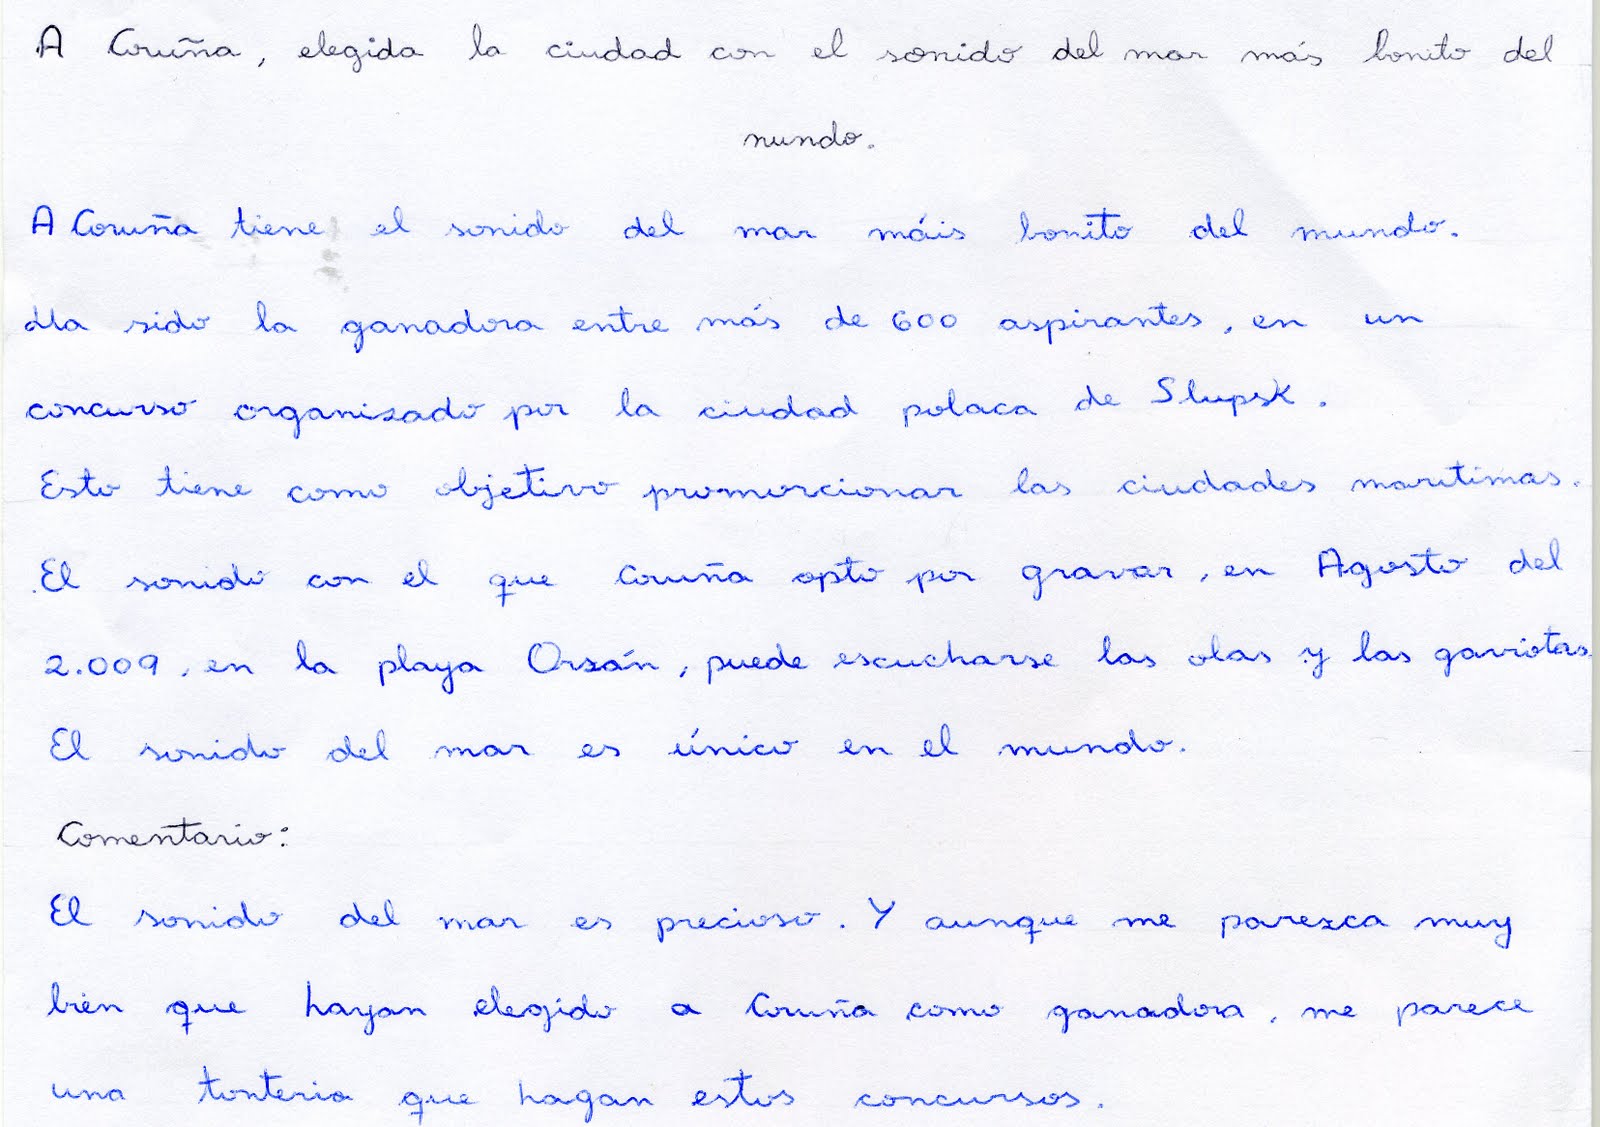 A Coruña, elegida la ciudad con el sonido del mar más bonito del
nundo.
A Coruña tiene el sonido del mar máis bonito del mundo.
Ha sido la ganadora entre más de 600 aspirantes, en un
concurso organizado por la ciudad polaca de Slupsk.
Esto tiene como objetivo promorcionar las ciudades maritimas.
El sonido con el que Coruña opto por gravar, en Agosto del
2.009, en la playa Orzán, puede escucharse las olas y las gaviotas
El sonido del mar es único en el mundo.
Comentario:
El sonido del mar es precioso. Y aunque me parezca muy
bien que hayan elegido a Coruña como ganadora, me parece
una tonteria que hagan estos concursos.